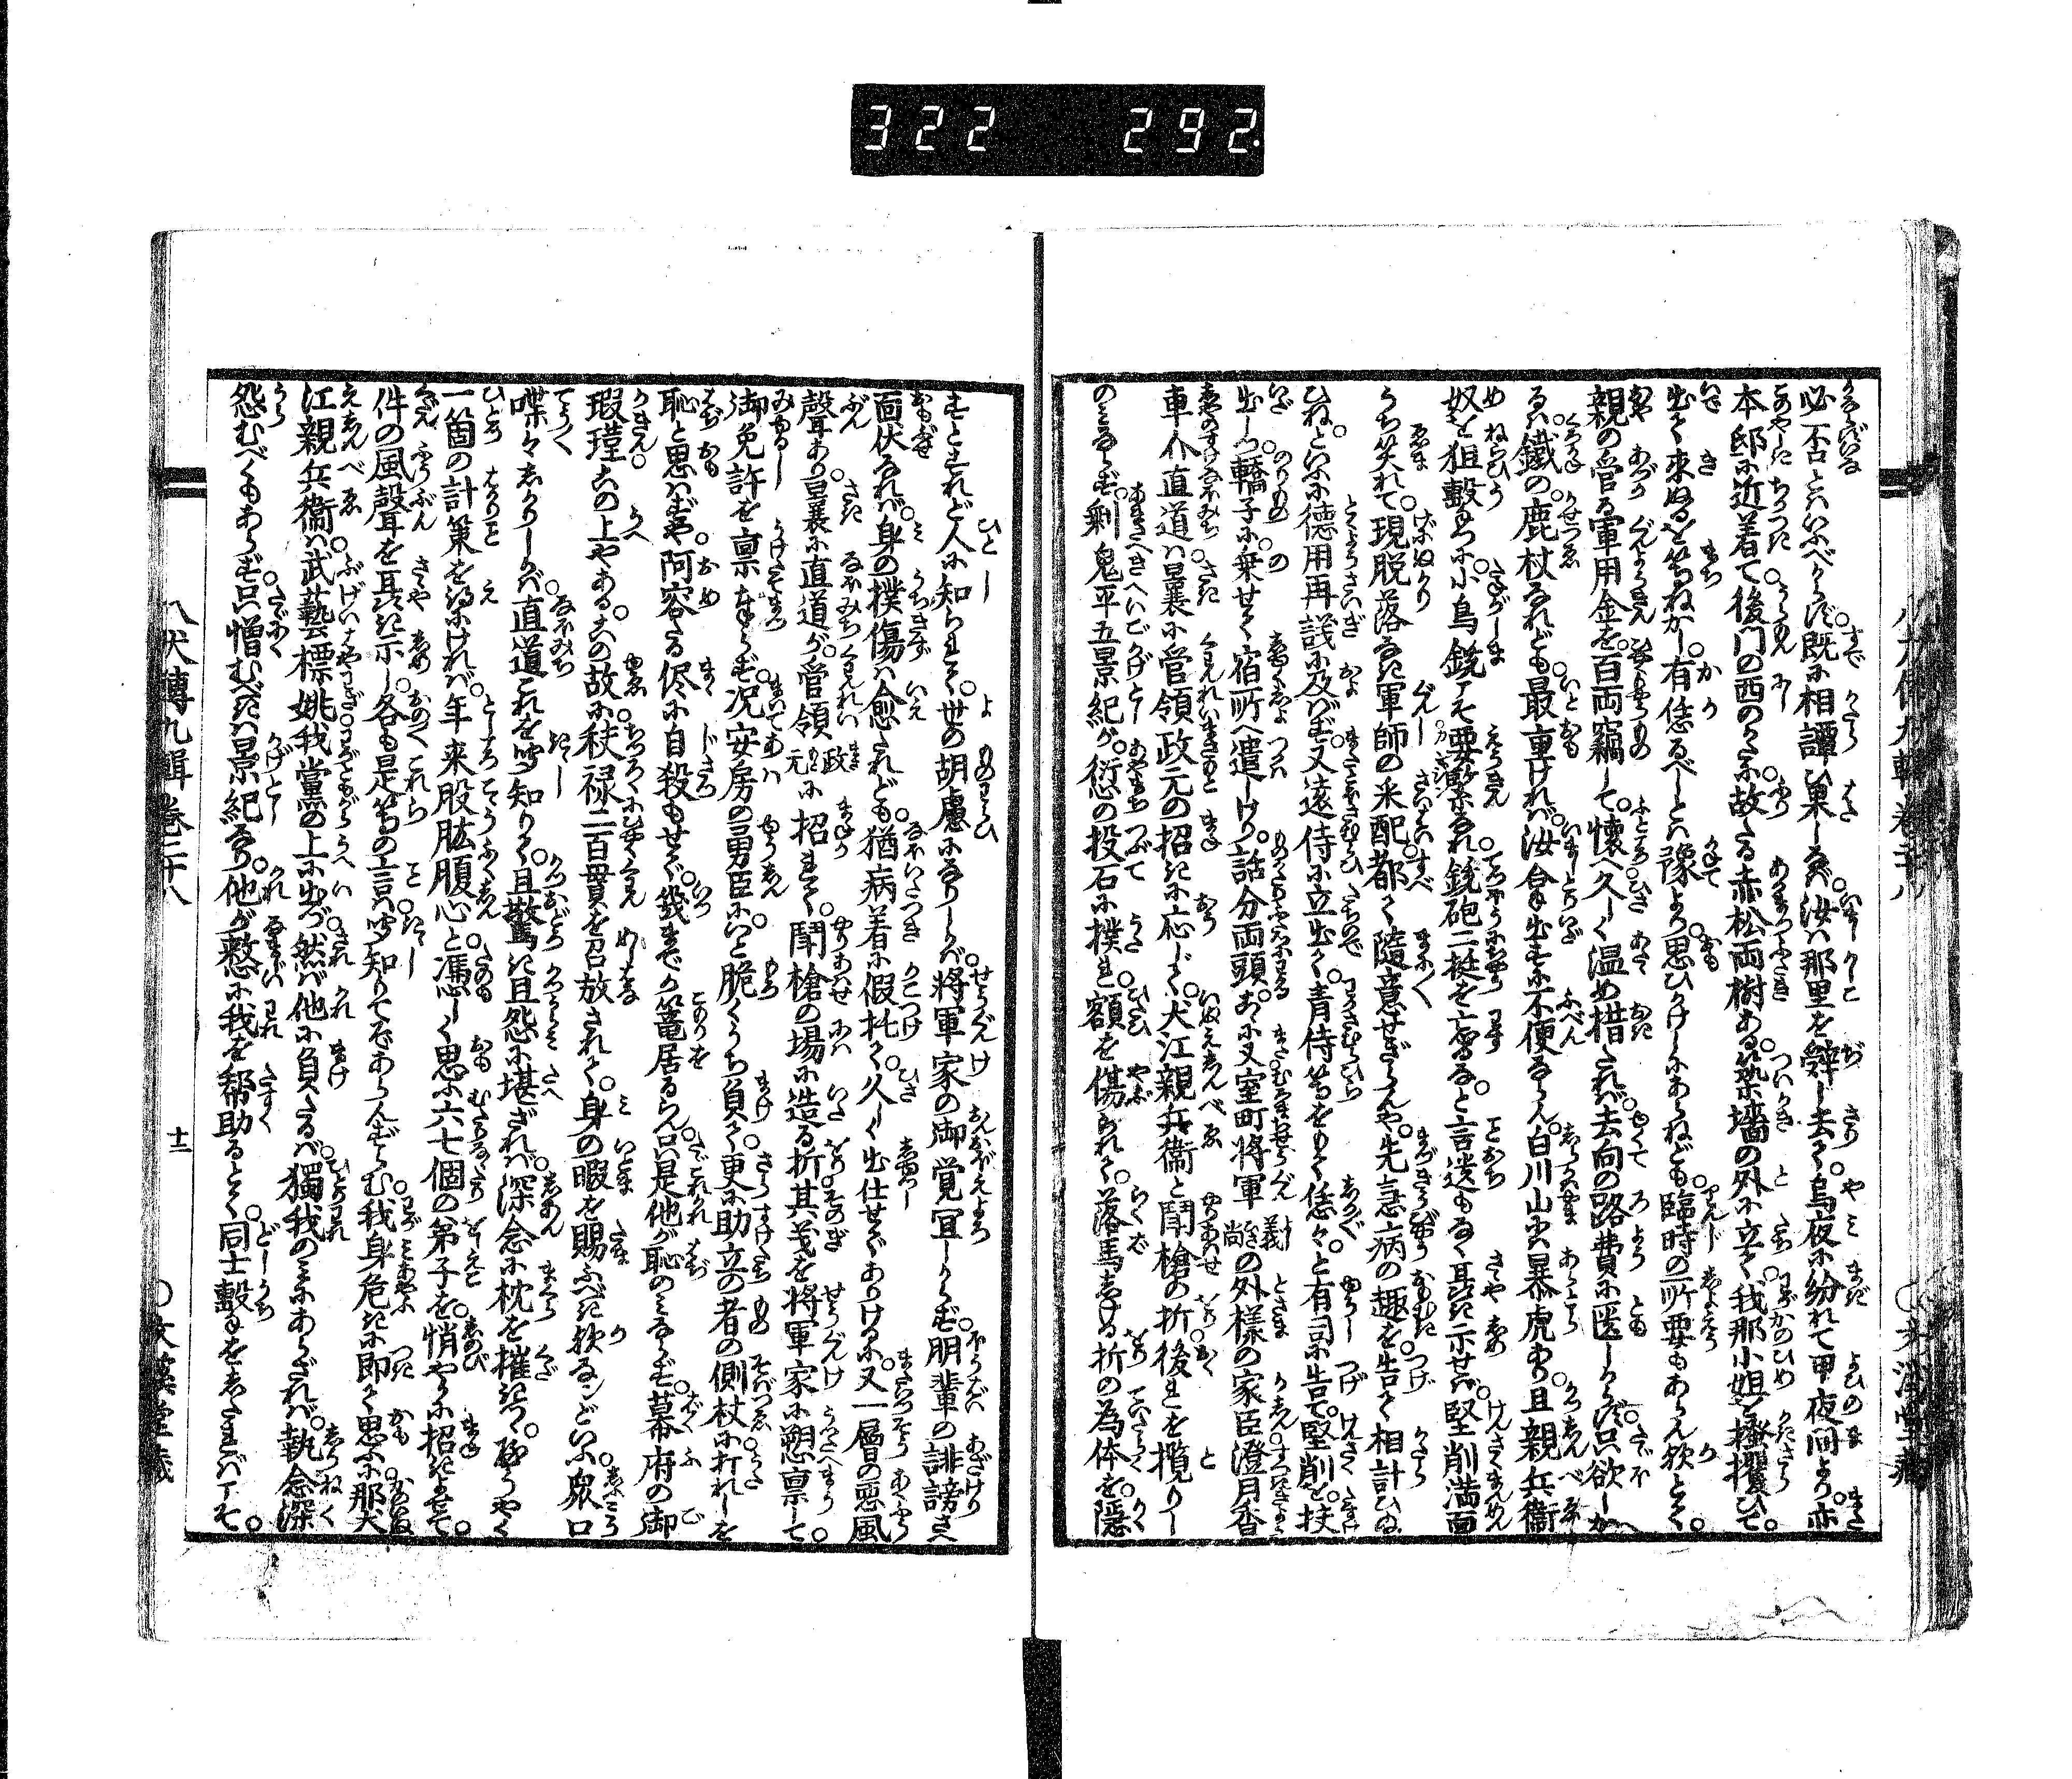 322 292.
必不否とはいふべからず。既に相譚ひ果しなば。汝は那里を辭し去て。烏夜に紛れて甲夜間より。亦
本邸に近着て後門の西のかたに。故たる赤松両樹ある。築墻の外に立て。我那小姐を掻攫ひて。
出て來ぬるを等ねかし。有恁るべしとは豫より。思ひかけしにあらねども。臨時の所要もあらん欤とて。
親の管る軍用金を。百両竊して。懐へ久しく温め措たれば。去向の路費に匱しからず。只欲しか
るは鐵の鹿杖なれども。最重ければ。汝拿出すに不便ならん。白川山には暴虎あり。且親兵衛
奴を狙撃んに。小鳥銃こそ要緊なれ。銃砲二挺を忘るゝな。と言遺もなく耳語示せば。堅削満面
うち笑れて。現脱落なき軍師の采配。都て隨意せざらんや。先急病の趣を。告て相計ひ侍
ひね。といふに徳用再議に及ばず。又遠侍に立出て。青侍等をもて恁々。と有司に告て。堅削を扶
出しつ。轎子に乗せて宿所へ遣しけり。話分両頭。爰に又室町將軍義尚の外様の家臣。澄月香
車介直道は。曩に管領政元の招きに応じて。犬江親兵衛と鬪槍の折。後れを攬りし
のみならず。剰鬼平五景紀が。衍の投石に撲れ。額を傷られて。落馬しける折の為体を。隱
すとすれど人に知られて。世の胡慮になりしかば。將軍家の御覚宜しからず。朋輩の誹謗さへ
面伏なれば。身の撲傷は愈たれども。猶病着に假托て。久しく出仕せでありけるに。又一層の悪風
聲あり。曩に直道が。管領政元に招れて。鬪槍の場に造る折。其義を将軍家に愬稟して
御免許を稟まつらず。况安房の勇臣に。いと脆くうち負て。更に助立の者の側杖に打れしを
恥と思はずや。阿容たる侭に自殺もせで。幾までか篭居るらん。只是他が恥のみならず。幕府の御
瑕瑾この上やある。この故に秩禄二百貫を召放されて。身の暇を賜ふべき欤なンどいふ。衆口
喋々しかりしかば。直道これを聞知りて。且驚き且怨に堪ざれば。深念に枕を摧きつゝ。稍うやく
一箇の計策を得にければ。年来股肱腹心と憑しく思ふ六七個の弟子を。悄やかに招きよせて。
件の風聲を耳語示し。各も是等の言は。聞知りてぞあらんずらむ。我身危きに即て思ふに。那犬
江親兵衛は。武藝標姚我黨の上に出づ。然ば他に負たるは。獨我のみにあらざれば。執念深く
怨むべくもあらず。只憎むべきは景紀なり。他が憖に我を幇助るとて。同士撃をしたればこそ。
八犬傳九輯巻二十八
十二
○文溪堂藏